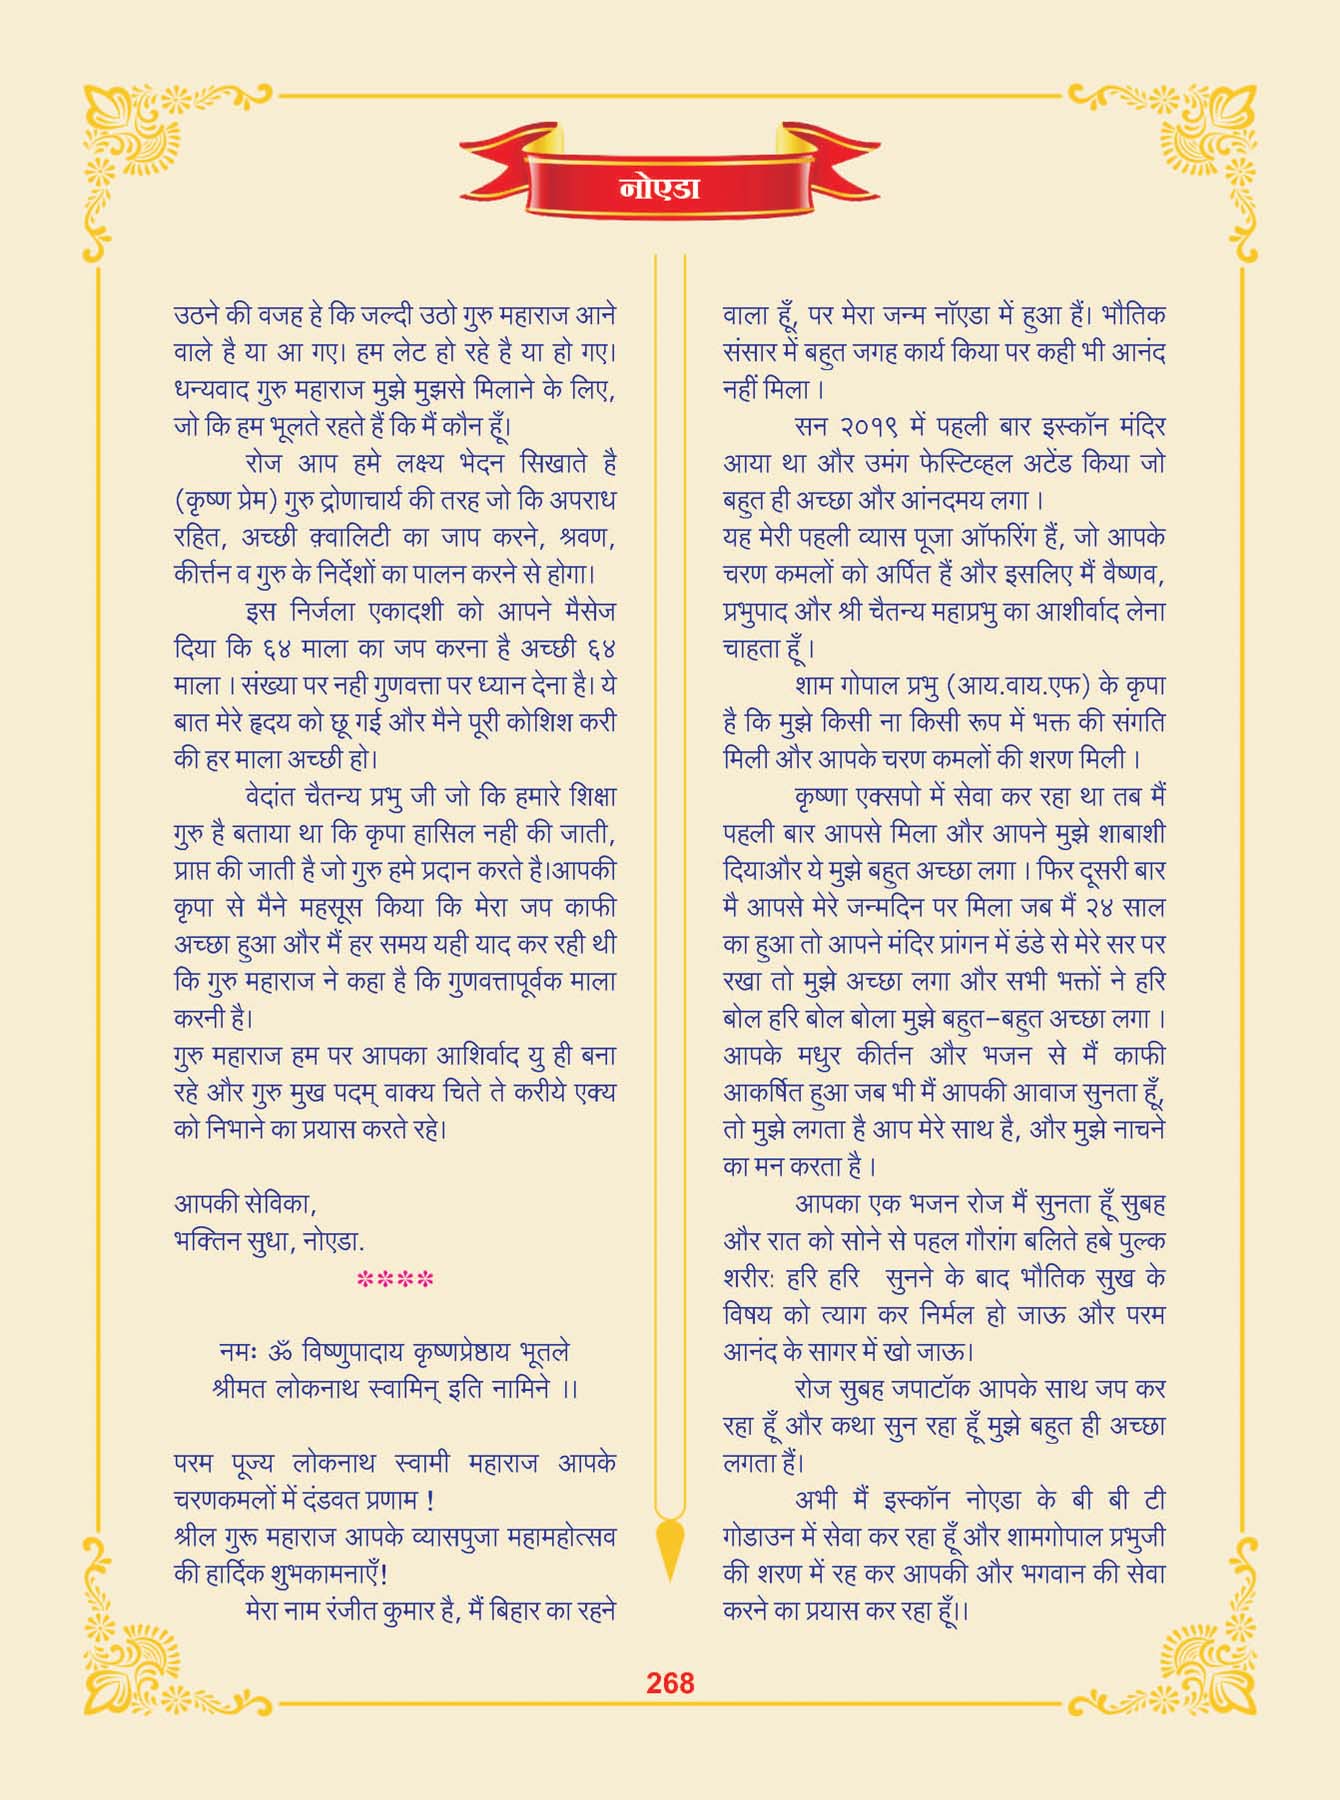 नोएडा
उठने की वजह हे कि जल्दी उठो गुरु महाराज आने
वाले है या आ गए। हम लेट हो रहे है या हो गए।
धन्यवाद गुरु महाराज मुझे मुझसे मिलाने के लिए,
जो कि हम भूलते रहते हैं कि मैं कौन हूँ।
रोज आप हमे लक्ष्य भेदन सिखाते है
(कृष्ण प्रेम) गुरु द्रोणाचार्य की तरह जो कि अपराध
रहित, अच्छी क़्वालिटी का जाप करने, श्रवण,
कीर्त्तन व गुरु के निर्देशों का पालन करने से होगा।
इस निर्जला एकादशी को आपने मैसेज
दिया कि ६४ माला का जप करना है अच्छी ६४
माला । संख्या पर नही गुणवत्ता पर ध्यान देना है। ये
बात मेरे हृदय को छू गई और मैने पूरी कोशिश करी
की हर माला अच्छी हो।
वेदांत चैतन्य प्रभु जी जो कि हमारे शिक्षा
गुरु है बताया था कि कृपा हासिल नही की जाती,
प्राप्त की जाती है जो गुरु हमे प्रदान करते है।आपकी
कृपा से मैने महसूस किया कि मेरा जप काफी
अच्छा हुआ और मैं हर समय यही याद कर रही थी
कि गुरु महाराज ने कहा है कि गुणवत्तापूर्वक माला
करनी है।
गुरु महाराज हम पर आपका आशिर्वाद यु ही बना
रहे और गुरु मुख पदम् वाक्य चिते ते करीये एक्य
को निभाने का प्रयास करते रहे।
आपकी सेविका,
भक्तिन सुधा, नोएडा.
****
नमः ॐ विष्णुपादाय कृष्णप्रेष्ठाय भूतले
श्रीमत लोकनाथ स्वामिन् इति नामिने ।।
परम पूज्य लोकनाथ स्वामी महाराज आपके
चरणकमलों में दंडवत प्रणाम !
श्रील गुरू महाराज आपके व्यासपुजा महामहोत्सव
की हार्दिक शुभकामनाएँ!
मेरा नाम रंजीत कुमार है, मैं बिहार का रहने
वाला हूँ, पर मेरा जन्म नॉएडा में हुआ हैं। भौतिक
संसार में बहुत जगह कार्य किया पर कही भी आनंद
नहीं मिला ।
सन २०१९ में पहली बार इस्कॉन मंदिर
आया था और उमंग फेस्टिव्हल अटेंड किया जो
बहुत ही अच्छा और आंनदमय लगा ।
यह मेरी पहली व्यास पूजा ऑफरिंग हैं, जो आपके
चरण कमलों को अर्पित हैं और इसलिए मैं वैष्णव,
प्रभुपाद और श्री चैतन्य महाप्रभु का आशीर्वाद लेना
चाहता हूँ ।
शाम गोपाल प्रभु (आय.वाय.एफ) के कृपा
है कि मुझे किसी ना किसी रूप में भक्त की संगति
मिली और आपके चरण कमलों की शरण मिली ।
कृष्णा एक्सपो में सेवा कर रहा था तब मैं
पहली बार आपसे मिला और आपने मुझे शाबाशी
दियाऔर ये मुझे बहुत अच्छा लगा । फिर दूसरी बार
मै आपसे मेरे जन्मदिन पर मिला जब मैं २४ साल
का हुआ तो आपने मंदिर प्रांगन में डंडे से मेरे सर पर
रखा तो मुझे अच्छा लगा और सभी भक्तों ने हरि
बोल हरि बोल बोला मुझे बहुत-बहुत अच्छा लगा ।
आपके मधुर कीर्तन और भजन से मैं काफी
आकर्षित हुआ जब भी मैं आपकी आवाज सुनता हूँ,
तो मुझे लगता है आप मेरे साथ है, और मुझे नाचने
का मन करता है ।
आपका एक भजन रोज मैं सुनता हूँ सुबह
और रात को सोने से पहल गौरांग बलिते हबे पुल्क
शरीर: हरि हरि सुनने के बाद भौतिक सुख के
विषय को त्याग कर निर्मल हो जाऊ और परम
आनंद के सागर में खो जाऊ।
रोज सुबह जपाटॉक आपके साथ जप कर
रहा हूँ और कथा सुन रहा हूँ मुझे बहुत ही अच्छा
लगता हैं।
अभी मैं इस्कॉन नोएडा के बी बी टी
गोडाउन में सेवा कर रहा हूँ और शामगोपाल प्रभुजी
की शरण में रह कर आपकी और भगवान की सेवा
करने का प्रयास कर रहा हूँ।।
268